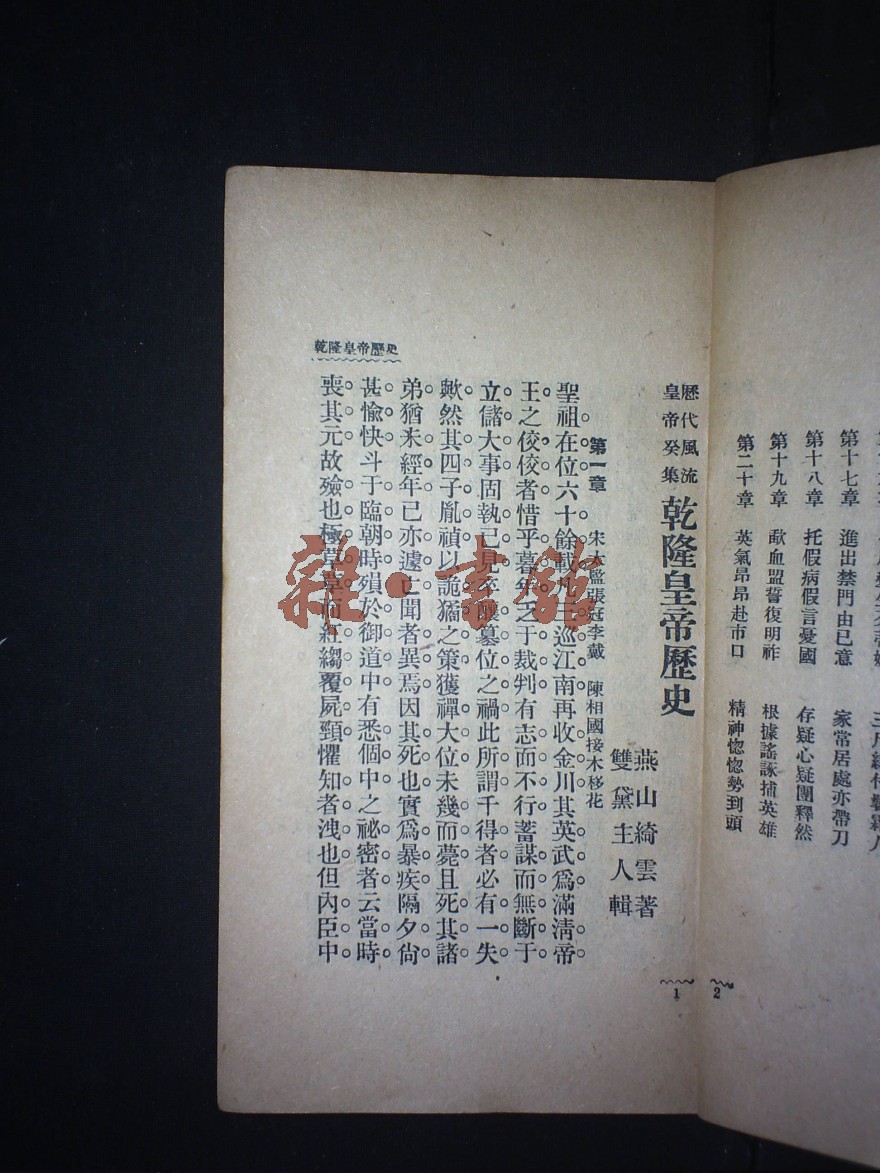 第十七章 進出禁門由已意 家常居處亦帶刀
第十八章 托假病假言憂國 存疑心疑團釋然
第十九章 歃血盟誓復明祚 根據謠諑捕英雄
第二十章 英氣昂昂赴市口 精神惚惚勢到頭
2
歷代風流
皇帝癸集
乾隆皇帝歷史
燕山綺雲著
雙黛主人輯
第一章 宋太監張冠李戴 陳相國接木移花
聖祖在位六十餘載凡三巡江南再收金川其英武爲滿清帝
王之佼佼者惜乎暮年乏于裁判有志而不行蓄謀而無斷于
立儲大事固執已見卒釀篡位之禍此所謂千得者必有一失
歟然其四子胤禎以詭譎之策獲禪大位未幾而薨且死其諸
弟猶未經年已亦遽亡聞者異焉因其死也實爲暴疾隔夕尙
甚愉快斗于臨朝時殞於御道中有悉個中之祕密者云當時
喪其元故殮也極草草而紅縐覆屍頸懼知者洩也但內臣中
乾隆皇帝歷史
1
雜·書館